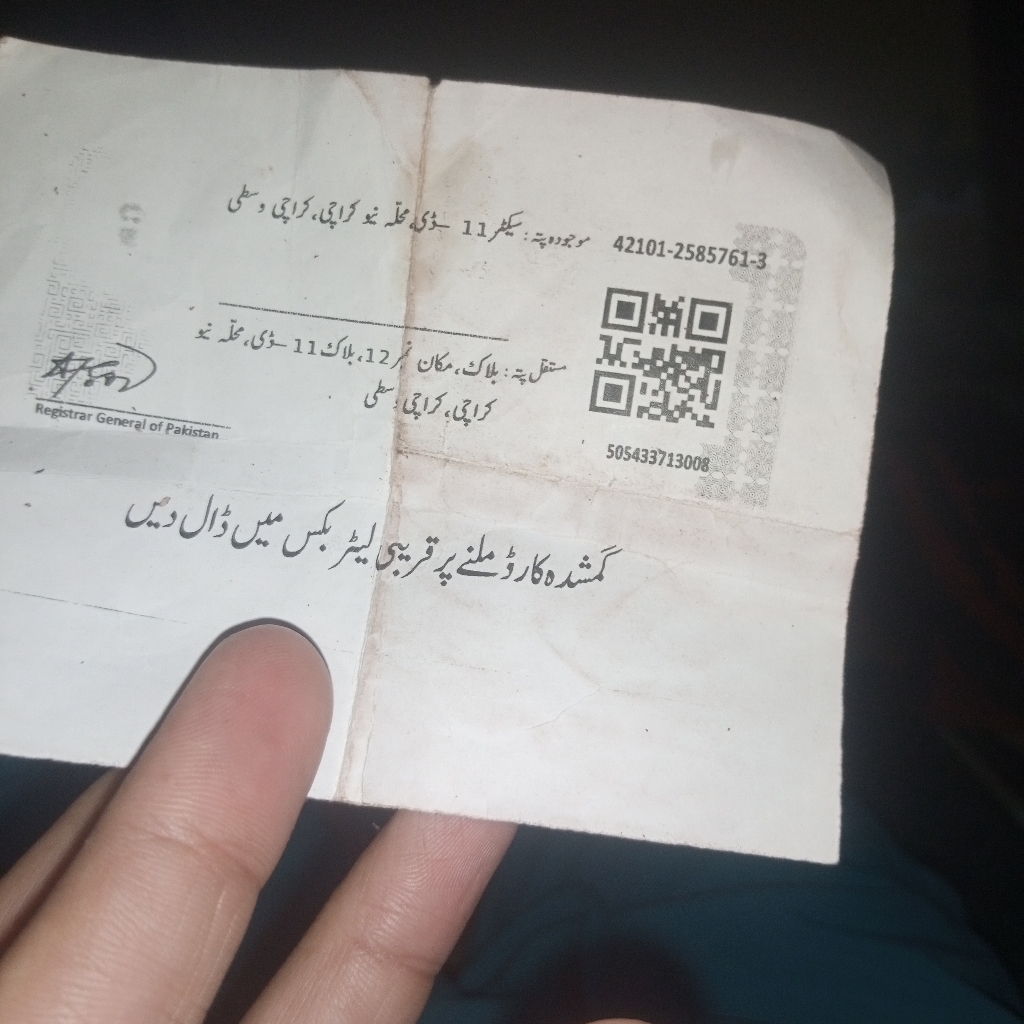 42101-2585761-3
موجودہ پتہ: سیکٹر 11 -ڈی، محلّہ نیو کراچی، کراچی وسطی
مستقل پتہ: بلاک، مکان نمبر 12، بلاک 11 -ڈی، محلّہ نیو
کراچی، کراچی وسطی
505433713008
Registrar General of Pakistan
گمشدہ کارڈ ملنے پر قریبی لیٹر بکس میں ڈال دیں